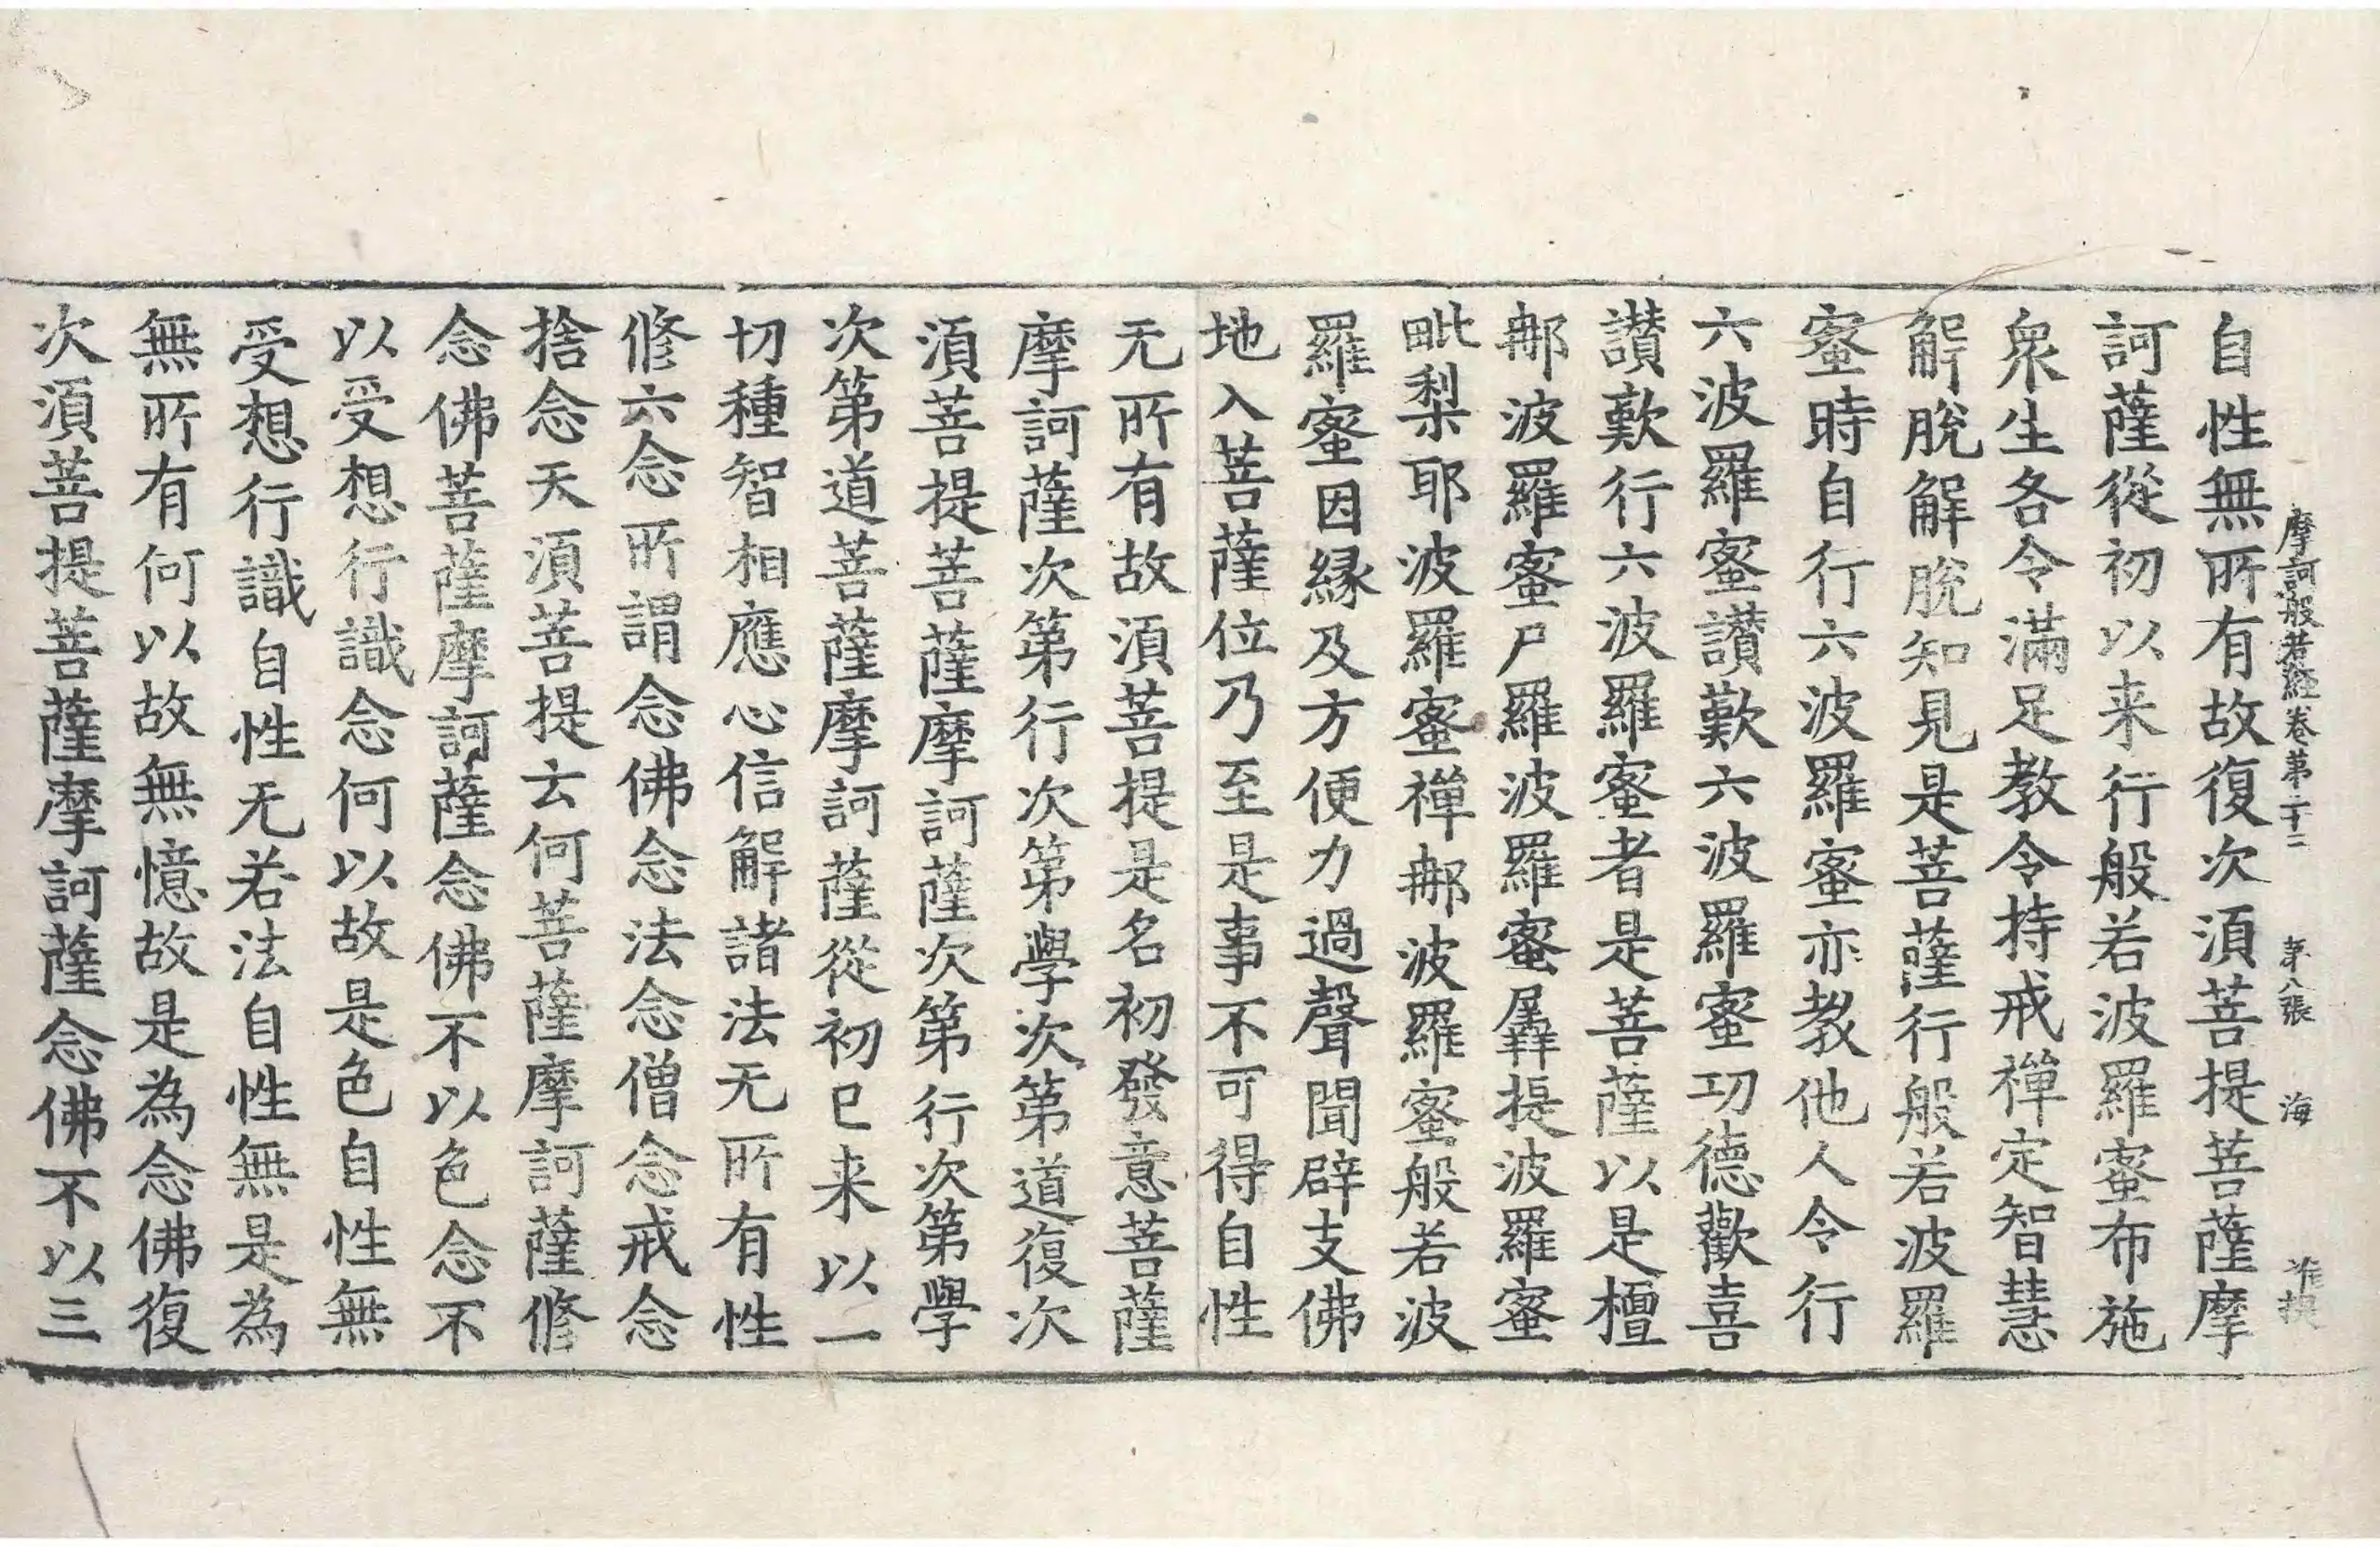 摩訶般若經卷第二十二 第八張 海
自性無所有故復次湏菩提菩薩摩
訶薩從初以来行般若波羅蜜布施
衆生各令滿足教令持戒禪定智慧
解脫解脫知見是菩薩行般若波羅
蜜時自行六波羅蜜亦教他人令行
六波羅蜜讃歎六波羅蜜功德歡喜
讃歎行六波羅蜜者是菩薩以是檀
那波羅蜜尸羅波羅蜜羼提波羅蜜
毗梨耶波羅蜜禪那波羅蜜般若波
羅蜜因緣及方便力過聲聞辟支佛
地入菩薩位乃至是事不可得自性
无所有故湏菩提是名初發意菩薩
摩訶薩次第行次第學次第道復次
湏菩提菩薩摩訶薩次第行次第學
次第道菩薩摩訶薩從初已来以一
切種智相應心信解諸法无所有性
修六念所謂念佛念法念僧念戒念
捨念天湏菩提云何菩薩摩訶薩修
念佛菩薩摩訶薩念佛不以色念不
以受想行識念何以故是色自性無
受想行識自性无若法自性無是為
無所有何以故無憶故是為念佛復
次湏菩提菩薩摩訶薩念佛不以三